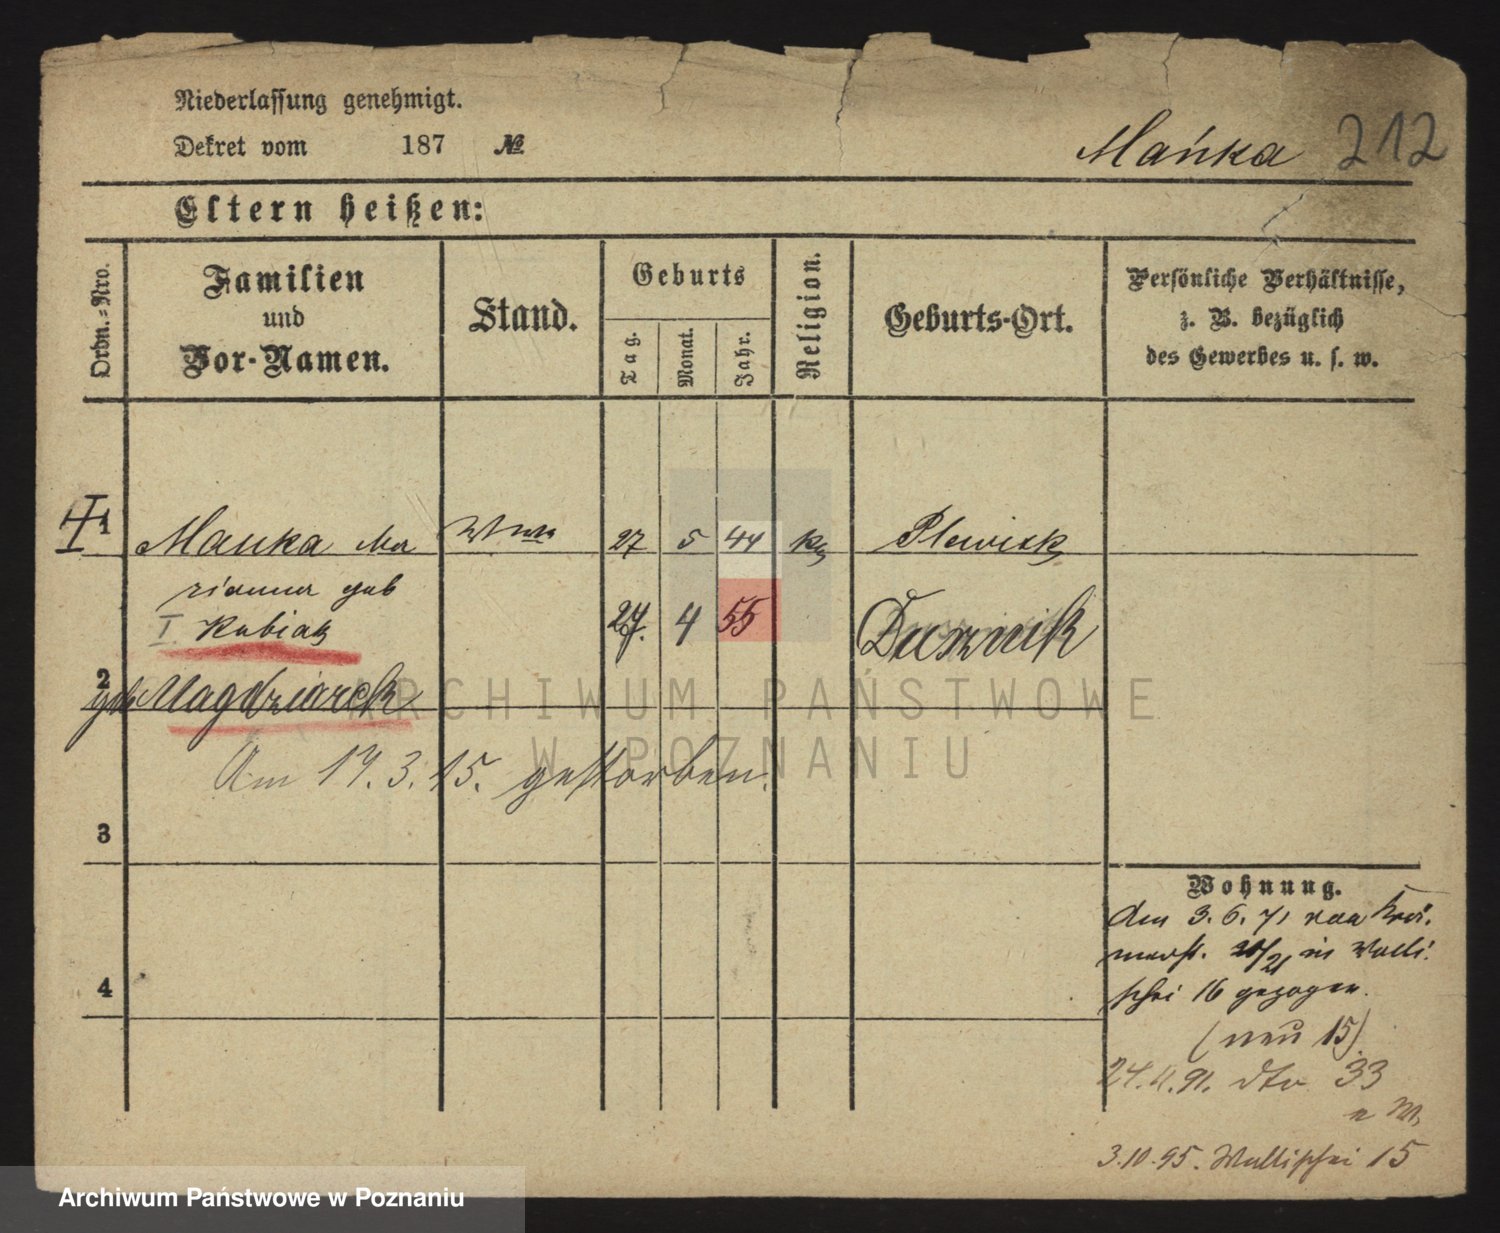 Niederlassung genehmigt.
Dekret vom 187 №
Mańka 212
Eltern heißen:
Ordn.-Nro.
Familien
und
Vor-Namen.
Stand.
Geburts
Tag.
Monat.
Jahr.
Religion.
Geburts-Ort.
Persönliche Verhältnisse,
z. B. bezüglich
des Gewerbes u. s. w.
1 Manka Ma Wwe 27 5 44 kₐ Plewisk
rianna geb
I Kubiak 27. 4 55 Dusznik
2 geb Magdziarek
Am 19.3.15. gestorben.
3
4
Wohnung.
Am 3.6.71 von
20/21 in Walli
schei 16 gezogen.
(neu 15)
24.4.91. dto 33
3.10.95. Wallischei 15
ARCHIWUM PAŃSTWOWE
W POZNANIU
Archiwum Państwowe w Poznaniu